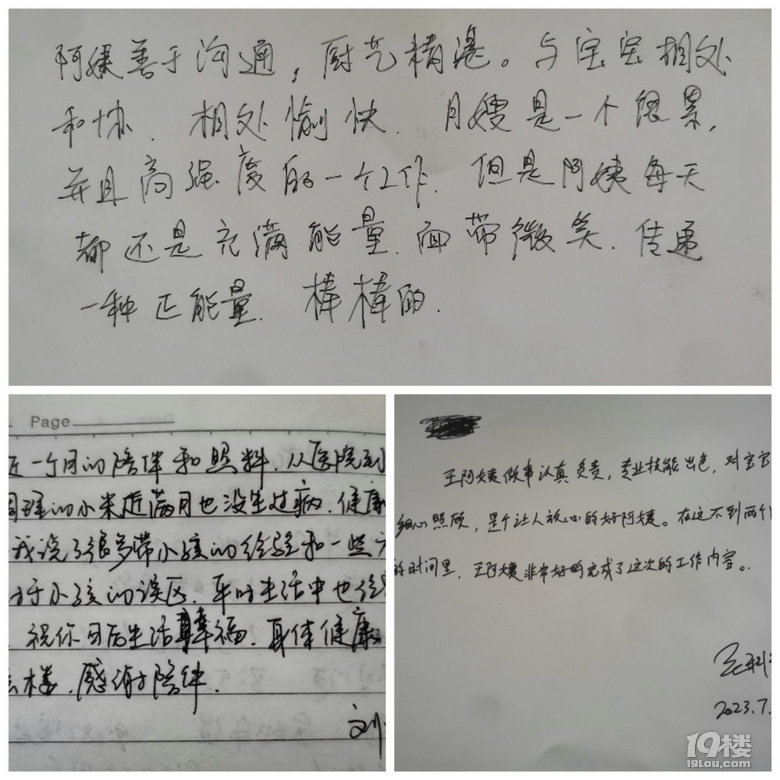 阿姨善于沟通，厨艺精湛。与宝宝相处
和协．相处愉快．月嫂是一个很累，
并且高强度的一个工作．但是阿姨每天
都还是充满能量．面带微笑．传递
一种正能量．棒棒的．
Page
近一个月的陪伴和照料，从医院到
的小米近满月也没生过病，健康
我说了很多带小孩的经验和一些
于小孩的误区．平时生活中也
祝你日后生活幸福，身体健康
楼，感谢陪伴．
刘
王阿姨做事认真负责，专业技能出色，对宝宝
细心照顾，是个让人放心的好阿姨。在这不到两个
的时间里，王阿姨非常好的完成了这次的工作内容。
2023.7.
19楼
19lou.com